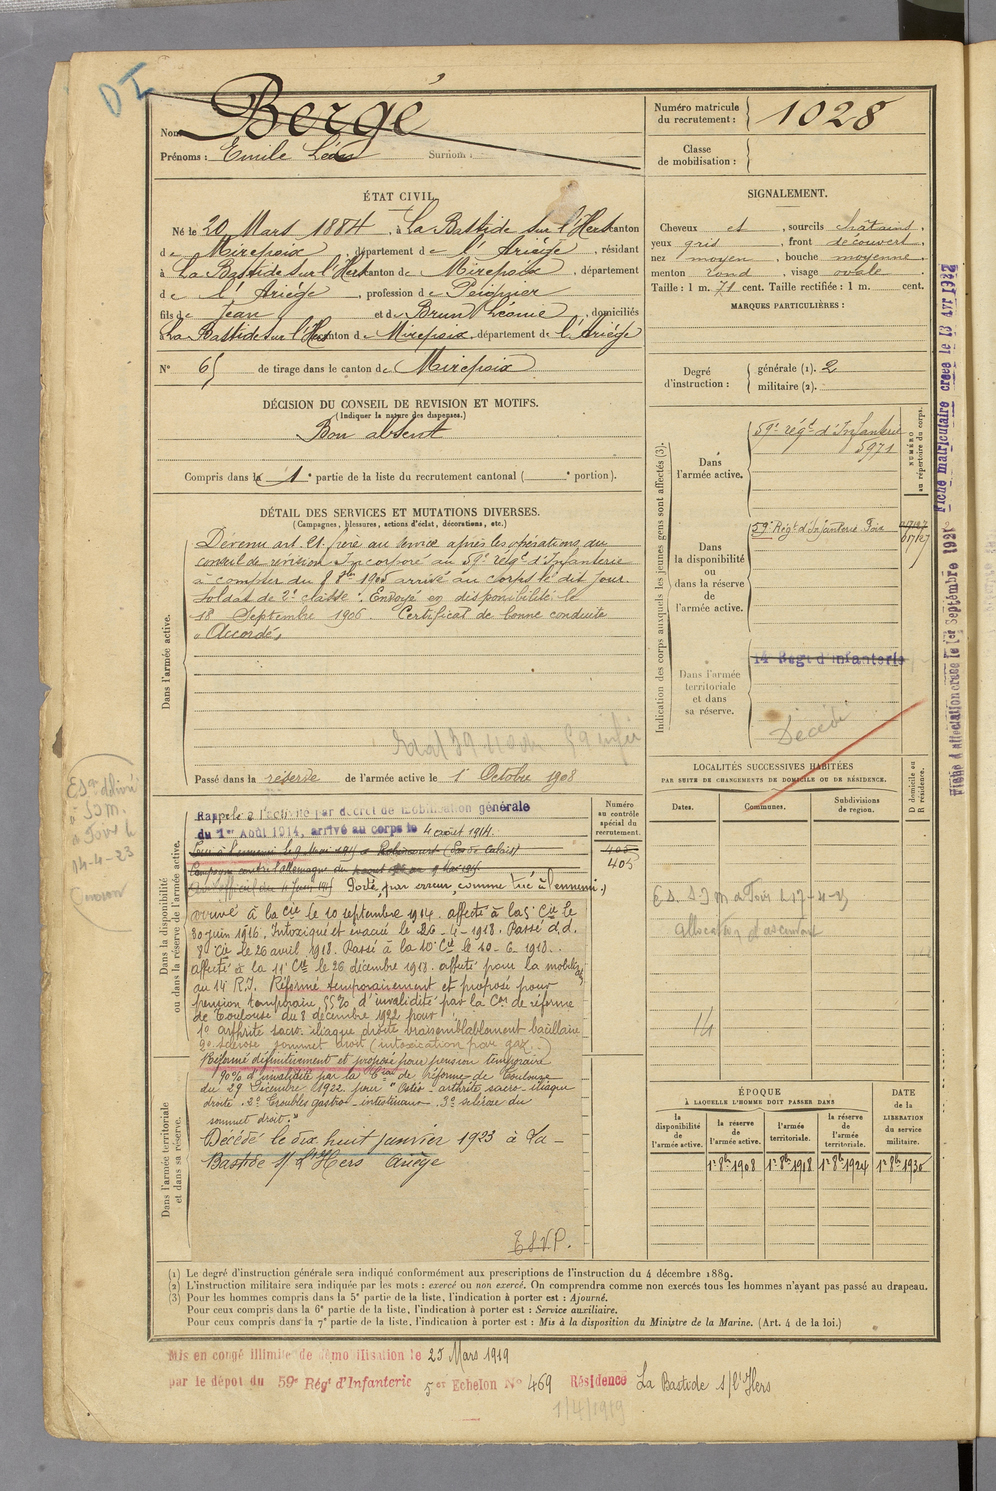 DI
Nom : Bergé
Prénoms : Emile Surnom :
Numéro matricule du recrutement : 1028
Classe de mobilisation :
ÉTAT CIVIL.
Né le 20 Mars 1884, à La Bastide sur l'Hers canton
de Mirepoix, département de l'Ariège, résidant
à La Bastide sur l'Hers canton de Mirepoix, département
de l'Ariège, profession de Peignier
fils de Jean et de Brun Leonie, domiciliés
à La Bastide sur l'Hers canton de Mirepoix, département de l'Ariège
N° 65 de tirage dans le canton de Mirepoix
SIGNALEMENT.
Cheveux et, sourcils châtains,
yeux gris, front découvert,
nez moyen, bouche moyenne,
menton rond, visage ovale.
Taille : 1 m. 71 cent. Taille rectifiée : 1 m. cent.
MARQUES PARTICULIÈRES :
Degré d'instruction :
générale (1). 2
militaire (2).
DÉCISION DU CONSEIL DE REVISION ET MOTIFS.
(Indiquer la nature des dispenses.)
Bon absent
Compris dans la 1e partie de la liste du recrutement cantonal ( e portion).
DÉTAIL DES SERVICES ET MUTATIONS DIVERSES.
(Campagnes, blessures, actions d'éclat, décorations, etc.)
Dans l'armée active.
Devenu art. 21. frère au service après les opérations du
conseil de revision. Incorporé au 59e régt d'Infanterie
à compter du 8 8bre 1905 arrivé au corps le dit jour.
Soldat de 2e classe. Envoyé en disponibilité le
18 Septembre 1906. Certificat de bonne conduite
"Accordé"
Passé dans la réserve de l'armée active le 1er Octobre 1908
Indication des corps auxquels les jeunes gens sont affectés (3).
NUMÉRO au répertoire du corps.
Dans l'armée active.
59e régt d'Infanterie
5971
Dans la disponibilité ou dans la réserve de l'armée active.
59e Régt d'Infanterie Foix
Dans l'armée territoriale et dans sa réserve.
14 Regt d'Infanterie
Décédé
LOCALITÉS SUCCESSIVES HABITÉES
PAR SUITE DE CHANGEMENTS DE DOMICILE OU DE RÉSIDENCE.
Dates.
Communes.
Subdivisions de région.
D domicile ou R résidence.
14
Dans la disponibilité ou dans la réserve de l'armée active.
Numéro au contrôle spécial du recrutement.
405
405
Rappelé à l'activité par décret de mobilisation générale
du 1er Août 1914, arrivé au corps le 4 août 1914.
Tué à l'ennemi le 9 Mai 1915 à (Pas de Calais)
Campagne contre l'Allemagne du
Porté, par erreur, comme tué à l'ennemi.
arrivé à la Cie le 10 septembre 1914. affecté à la 5e Cie le
30 juin 1916. Intoxiqué et évacué le 26-4-1918. Passé d.d.
8e Cie le 26 avril 1918. Passé à la 10e Cie le 10-6-1918.
affecté à la 11e Cie le 26 décembre 1918. affecté pour la mobilisation
au 14e R.I. Réformé temporairement et proposé pour
pension temporaire 55% d'invalidité par la Con de réforme
de Toulouse du 8 décembre 1922 pour
1° arthrite sacro-iliaque droite vraisemblablement bacillaire
2° sclérose sommet droit (intoxication par gaz...)
Réformé définitivement et proposé pour pension temporaire
90% d'invalidité par la Con de réforme de Toulouse
du 29 décembre 1922 pour " Ostéo arthrite sacro-iliaque
droite. 2° Troubles gastro-intestinaux. 3° sclérose du
sommet droit."
Décédé le dix huit janvier 1923 à La
Bastide s/ L'Hers Ariège
T.S.V.P.
Dans l'armée territoriale et dans sa réserve.
ÉPOQUE
À LAQUELLE L'HOMME DOIT PASSER DANS
la disponibilité de l'armée active.
la réserve de l'armée active.
l'armée territoriale.
la réserve de l'armée territoriale.
DATE de la LIBÉRATION du service militaire.
1er 8bre 1908
1er 8bre 1918
1er 8bre 1924
1er 8bre 1930
(1) Le degré d'instruction générale sera indiqué conformément aux prescriptions de l'instruction du 4 décembre 1889.
(2) L'instruction militaire sera indiquée par les mots : exercé ou non exercé. On comprendra comme non exercés tous les hommes n'ayant pas passé au drapeau.
(3) Pour les hommes compris dans la 5e partie de la liste, l'indication à porter est : Ajourné.
Pour ceux compris dans la 6e partie de la liste, l'indication à porter est : Service auxiliaire.
Pour ceux compris dans la 7e partie de la liste, l'indication à porter est : Mis à la disposition du Ministre de la Marine. (Art. 4 de la loi.)
Mis en congé illimité de démobilisation le 25 Mars 1919
par le dépôt du 59e Régt d'Infanterie 5er Echelon N° 469 Résidence La Bastide s/l'Hers
1/4/1919
Fiche matriculaire créée le 13 AVR 1922
Fiche d'affectation créée le 1er Septembre 1921